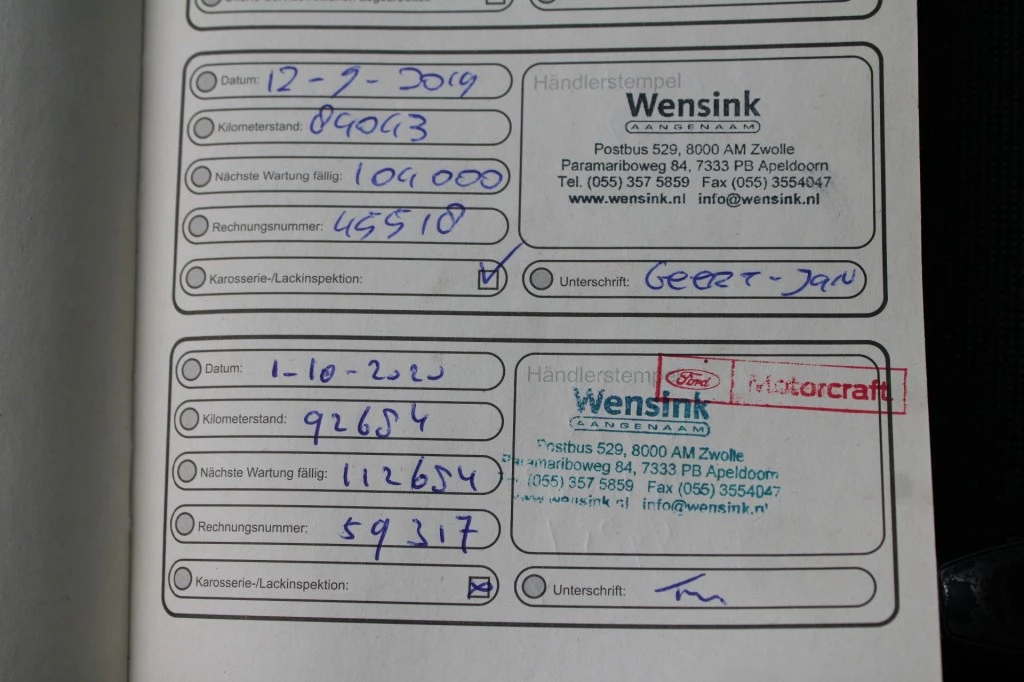 Datum: 12-9-2019
Kilometerstand: 84043
Nächste Wartung fällig: 104 000
Rechnungsnummer: 45518
Karosserie-/Lackinspektion:
Händlerstempel
Wensink
AANGENAAM
Postbus 529, 8000 AM Zwolle
Paramariboweg 84, 7333 PB Apeldoorn
Tel. (055) 357 5859 Fax (055) 3554047
www.wensink.nl info@wensink.nl
Unterschrift: GEERT-JAN
Datum: 1-10-2020
Kilometerstand: 92654
Nächste Wartung fällig: 112654
Rechnungsnummer: 59317
Karosserie-/Lackinspektion:
Händlerstempel
Ford Motorcraft
Wensink
AANGENAAM
Postbus 529, 8000 AM Zwolle
Paramariboweg 84, 7333 PB Apeldoorn
(055) 357 5859 Fax (055) 3554047
www.wensink.nl info@wensink.nl
Unterschrift: